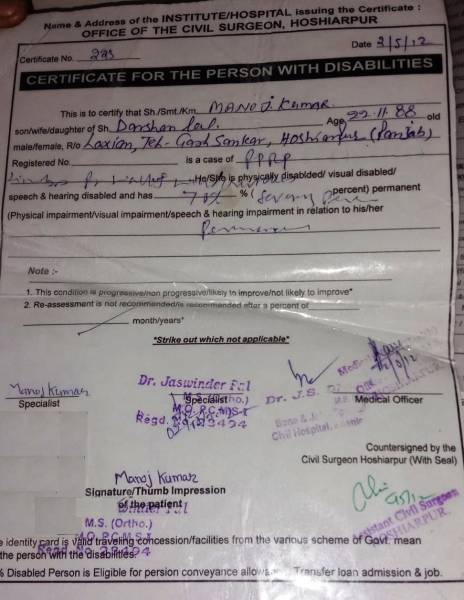 Name & Address of the INSTITUTE/HOSPITAL issuing the Certificate :
OFFICE OF THE CIVIL SURGEON, HOSHIARPUR
Certificate No. 223
Date 2/5/12
CERTIFICATE FOR THE PERSON WITH DISABILITIES
This is to certify that Sh./Smt./Km. MANOJ Kumar
son/wife/daughter of Sh. Darshan Lal. Age 22-11-88 old
male/female, R/o Laxian, Teh- Garh Sankar, Hoshiarpur (Punjab)
Registered No. is a case of PPRP
He/She is physically disabled/ visual disabled/
speech & hearing disabled and has 70% % (Seventy percent) permanent
(Physical impairment/visual impairment/speech & hearing impairment in relation to his/her
Permanent
Note :-
1. This condition is progressive/non progressive/likely to improve/not likely to improve*
2. Re-assessment is not recommended/is recommended after a percent of
month/years*
*Strike out which not applicable*
Manoj Kumar
Specialist
Dr. Jaswinder Pal
Specialist
M.S. (Ortho.)
M.O. P.C.M.S-I
Regd.
Dr. J.S.
Civil Hospital,
Medical Officer
Countersigned by the
Civil Surgeon Hoshiarpur (With Seal)
Manoj Kumar
Signature/Thumb Impression
of the patient
M.S. (Ortho.)
Assistant Civil Surgeon
HOSHIARPUR.
e identity card is valid traveling concession/facilities from the various scheme of Govt. mean
the person with the disabilities.
% Disabled Person is Eligible for person conveyance allowa Transfer loan admission & job.